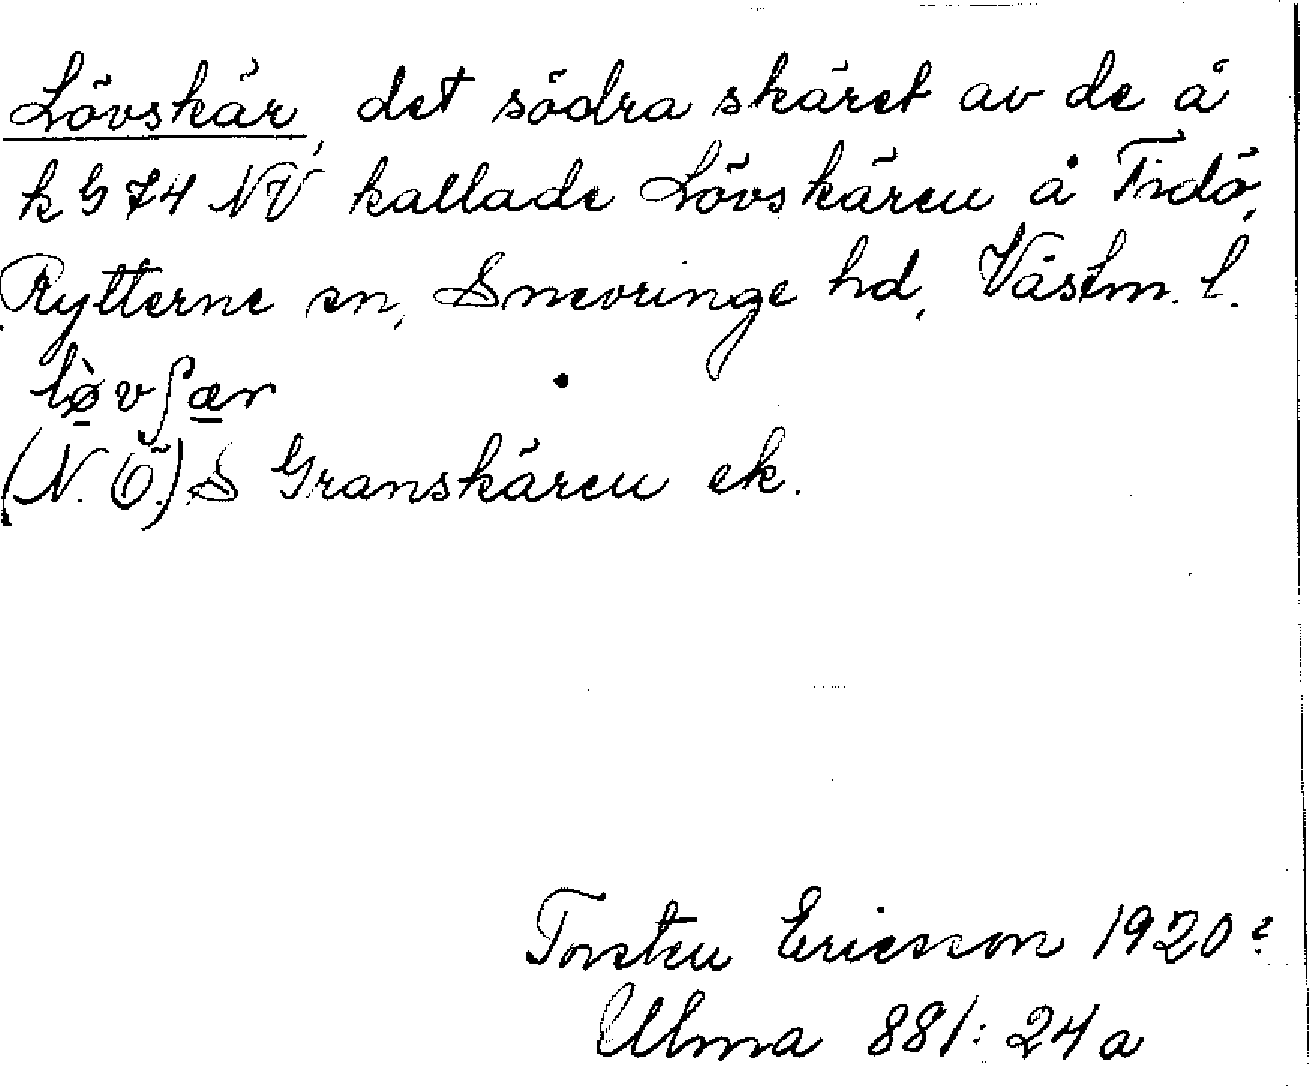 Lövskär, det södra skäret av de å
k G 74 NV kallade Lövskären å Tidö,
Rytterne sn, Snevringe hd, Västm. l.
lø̀vʃær
(N. Ö.) S Granskären ek.
Torsten Ericsson 1920?
Ulma 881:24a